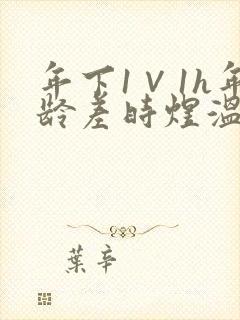 年下1V1h年
龄差时煜温
葉辛